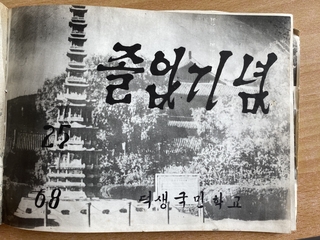 졸업기념
25
68
덕생국민학교